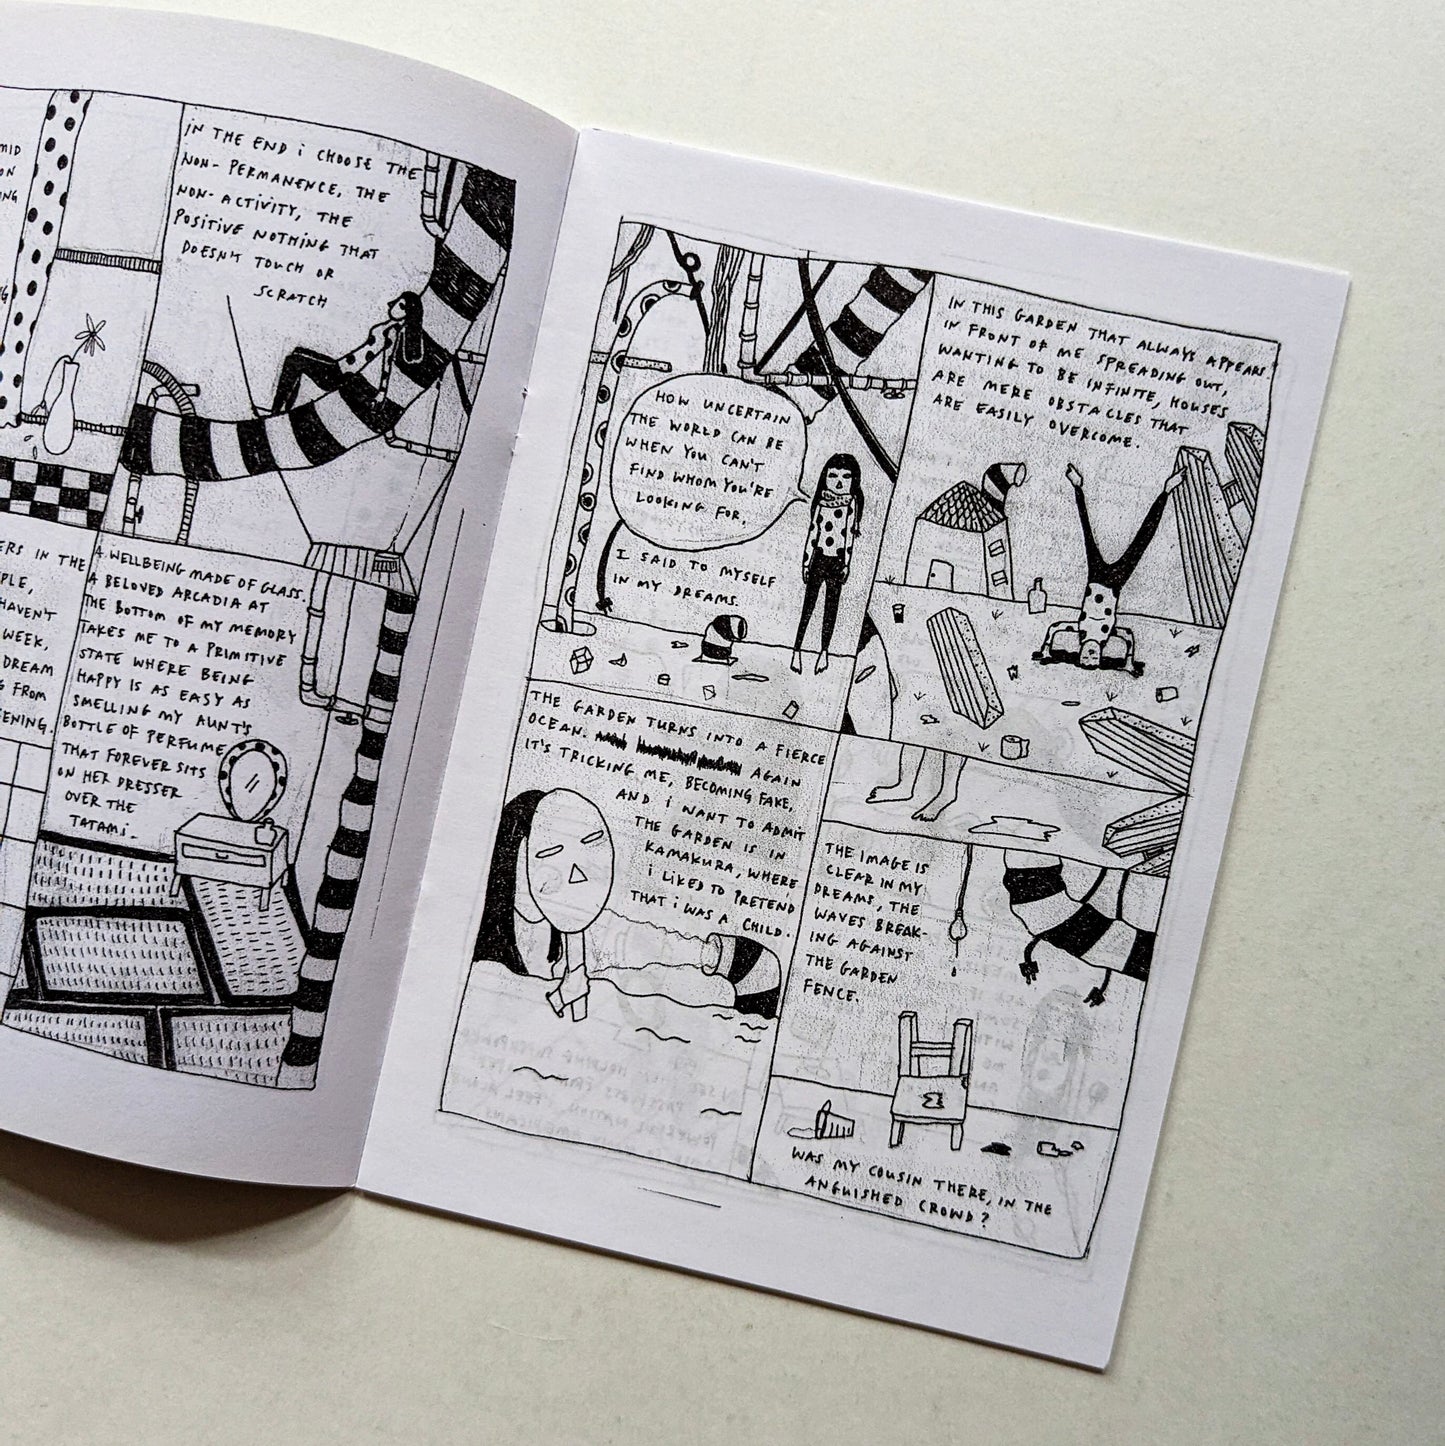 MID
ON
ING
NG
IN THE END i CHOOSE THE
NON- PERMANENCE, THE
NON- ACTIVITY, THE
POSITIVE NOTHING THAT
DOESN'T TOUCH OR
SCRATCH
ERS IN THE
PLE,
HAVEN'T
WEEK,
DREAM
G FROM
ENING.
A WELLBEING MADE OF GLASS.
A BELOVED ARCADIA AT
THE BOTTOM OF MY MEMORY
TAKES ME TO A PRIMITIVE
STATE WHERE BEING
HAPPY IS AS EASY AS
SMELLING MY AUNT'S
BOTTLE OF PERFUME
THAT FOREVER SITS
ON HER DRESSER
OVER THE
TATAMI.
HOW UNCERTAIN
THE WORLD CAN BE
WHEN YOU CAN'T
FIND WHOM YOU'RE
LOOKING FOR,
I SAID TO MYSELF
IN MY DREAMS.
IN THIS GARDEN THAT ALWAYS APPEARS
IN FRONT OF ME SPREADING OUT,
WANTING TO BE INFINITE, HOUSES
ARE MERE OBSTACLES THAT
ARE EASILY OVERCOME.
THE GARDEN TURNS INTO A FIERCE
OCEAN. AGAIN
IT'S TRICKING ME, BECOMING FAKE,
AND i WANT TO ADMIT
THE GARDEN IS IN
KAMAKURA, WHERE
i LIKED TO PRETEND
THAT i WAS A CHILD.
THE IMAGE IS
CLEAR IN MY
DREAMS, THE
WAVES BREAK-
ING AGAINST
THE GARDEN
FENCE.
WAS MY COUSIN THERE, IN THE
ANGUISHED CROWD?